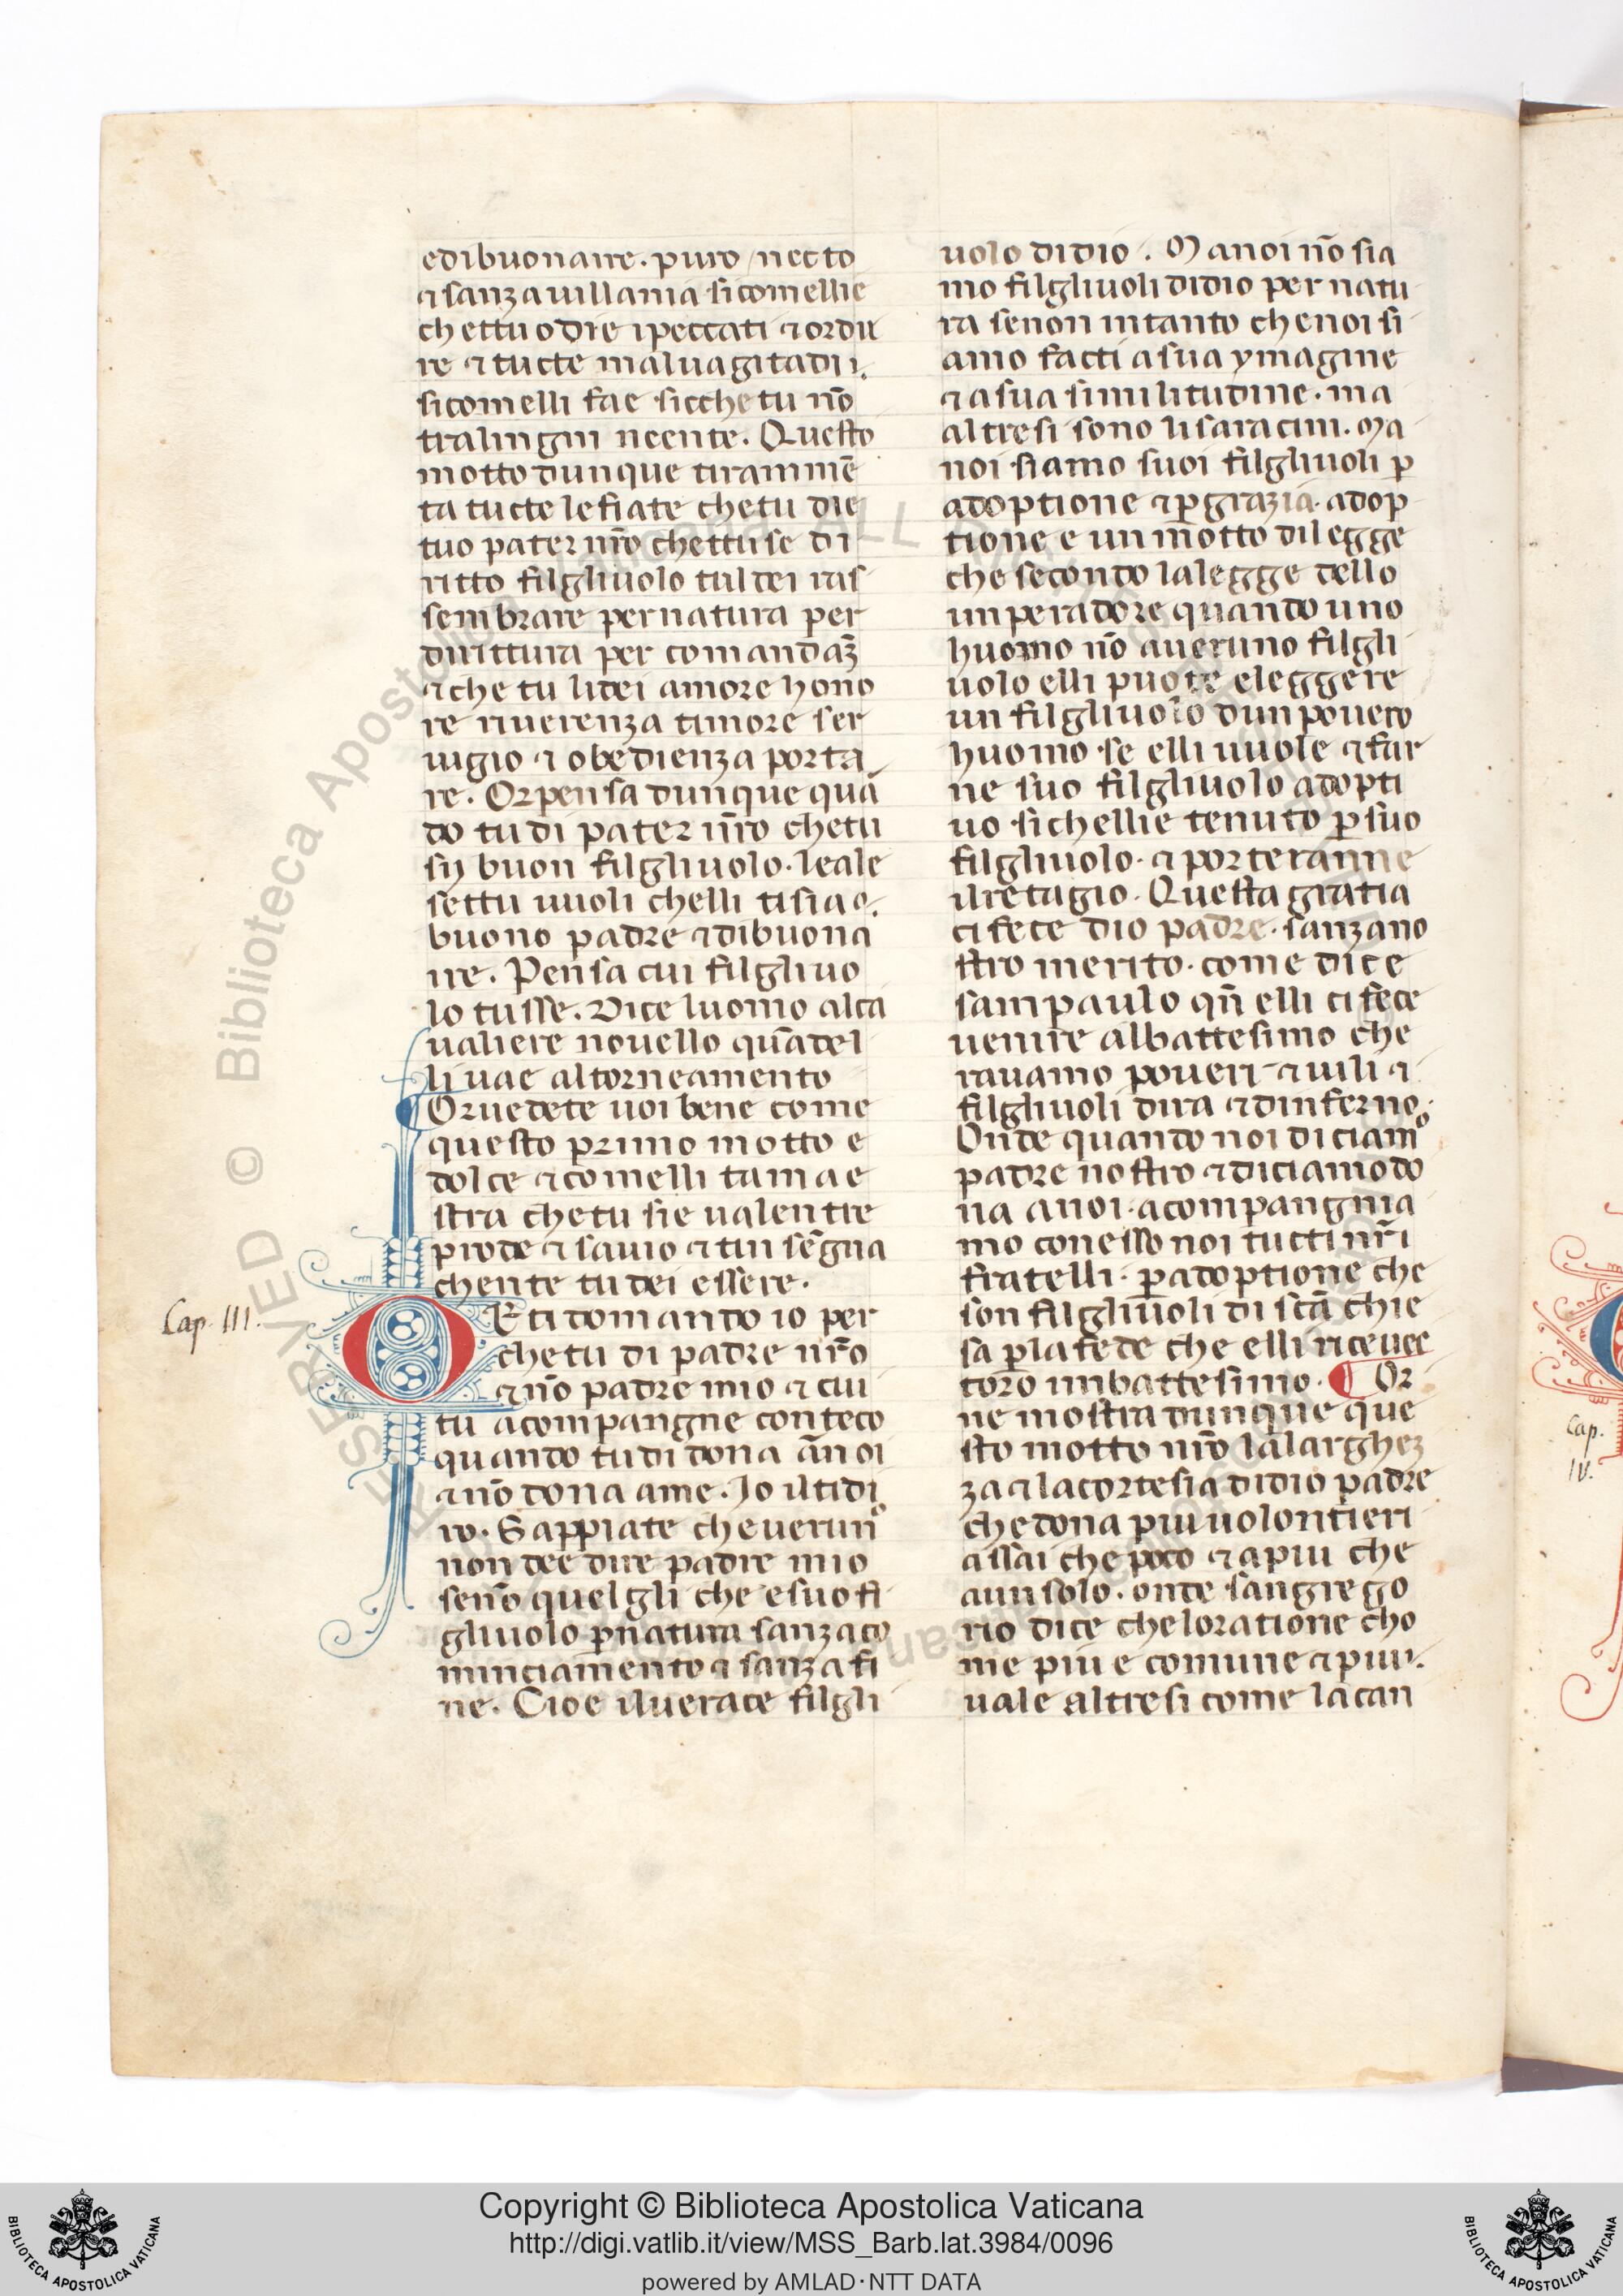 edibuonaire. puro / necto
⁊ sanza uillania sicomellie
chettu odie ipeccati ⁊ ordu
re ⁊ tucte maluagitadii.
sicomelli fae sicche tu nō
tralingni neente. Questo
motto dunque tirammē
ta tucte lefiate chetu die
tuo pater nr̄o chettu se di
ritto filgliuolo tuldei ras
sembrare per natura per
dirittura per comandaz̄
⁊ che tu lidei amore hono
re riuerenza timore ser
uigio ⁊ obedienza porta
re. Or pensa dunque quā
do tu di pater nr̄o chetu
sy buon filgliuolo. leale
settu uuoli chelli ti sia o.
buono padre ⁊ dibuona
ire. Pensa cui filgliuo
lo tusse. Dice luomo alca
ualiere nouello qūadel
li uae altorneamento
Oruedete uoi bene come
questo primo motto e
dolce ⁊ comelli tamae
stra chetu sie ualentre
prode ⁊ sauio ⁊ tin sēgna
chente tu dei essere.
Cap. III.
OR ti domando io per
che tu di padre nr̄o
⁊ nō padre mio ⁊ cui
tu acompangne conteco
quando tu di dona ānoi
⁊ nō dona ame. Io il ti di
ro. Sappiate che uerunº
non dee dire padre mio
senō quelgli che e suo fi
gliuolo p̄ natura sanza co
minciamento ⁊ sanza fi
ne. Cioe iluerace filgli
uolo didio. Ma noi nō sia
mo filgliuoli didio per natu
ra senon intanto che noi si
amo facti a sua ymagine
⁊ a sua similitudine. ma
altresi sono li saracini. Ma
noi siamo suoi filgliuoli p̄
adoptione ⁊ p̄ grazia. adop
tione e un motto dilegge
che secondo lalegge dello
imperadore quando uno
huomo nō aueruno filgli
uolo elli puote eleggere
un filgliuolo dun pouero
huomo se elli uuole ⁊ far
ne suo filgliuolo adopti
uo sichellie tenuto p̄ suo
filgliuolo. ⁊ porteranne
ilretagio. Questa gratia
ci fece dio padre. sanza no
stro merito. come dice
sam paulo qn̄ elli ci fece
uenire albattesimo che
rauamo poueri ⁊ uili ⁊
filgliuoli dira ⁊ dinferno.
Onde quando noi diciamº
padre nostro ⁊ diciamo do
na a noi. acompangnia
mo conesso noi tucti nr̄i
fratelli. p̄ adoptione che
son filgliuoli di scā chie
sa p̄ la fede che elli riceuec
toro imbattesimo. ¶ Or
ne mostra dunque que
sto motto nr̄o la larghez
za ⁊ la cortesia didio padre
che dona piu uolontieri
assai che poco ⁊ a piu che
a un solo. onde sangrego
rio dice che loratione cho
me piu e comune ⁊ piu.
uale altresi come la can
Cap.
IV.
© Biblioteca Apostolica Vaticana ALL RIGHTS RESERVED
Copyright © Biblioteca Apostolica Vaticana
http://digi.vatlib.it/view/MSS_Barb.lat.3984/0096
powered by AMLAD·NTT DATA
BIBLIOTECA APOSTOLICA VATICANA
BIBLIOTECA APOSTOLICA VATICANA